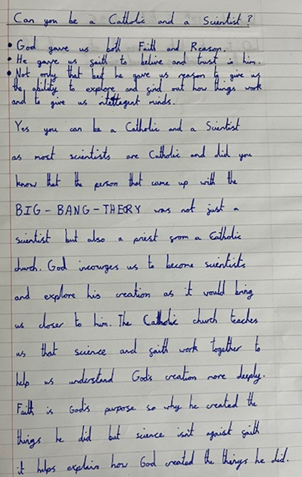 Can you be a Catholic and a Scientist?
• God gave us both Faith and Reason.
• He gave us faith to belive and trust in him.
• Not only that but he gave us reason to give us
the ability to explore and find out how things work
and to give us intellegent minds.
Yes you can be a Catholic and a Scientist
as most scientists are Catholic and did you
know that the person that came up with the
BIG-BANG-THEORY was not just a
scientist but also a priest from a Catholic
church. God incourges us to become scientists
and explore his creation as it would bring
us closer to him. The Catholic church teaches
us that science and faith work together to
help us understand Gods creation more deeply.
Faith is God's purpose so why he created the
things he did but science isn't against faith
it helps explain how God created the things he did.